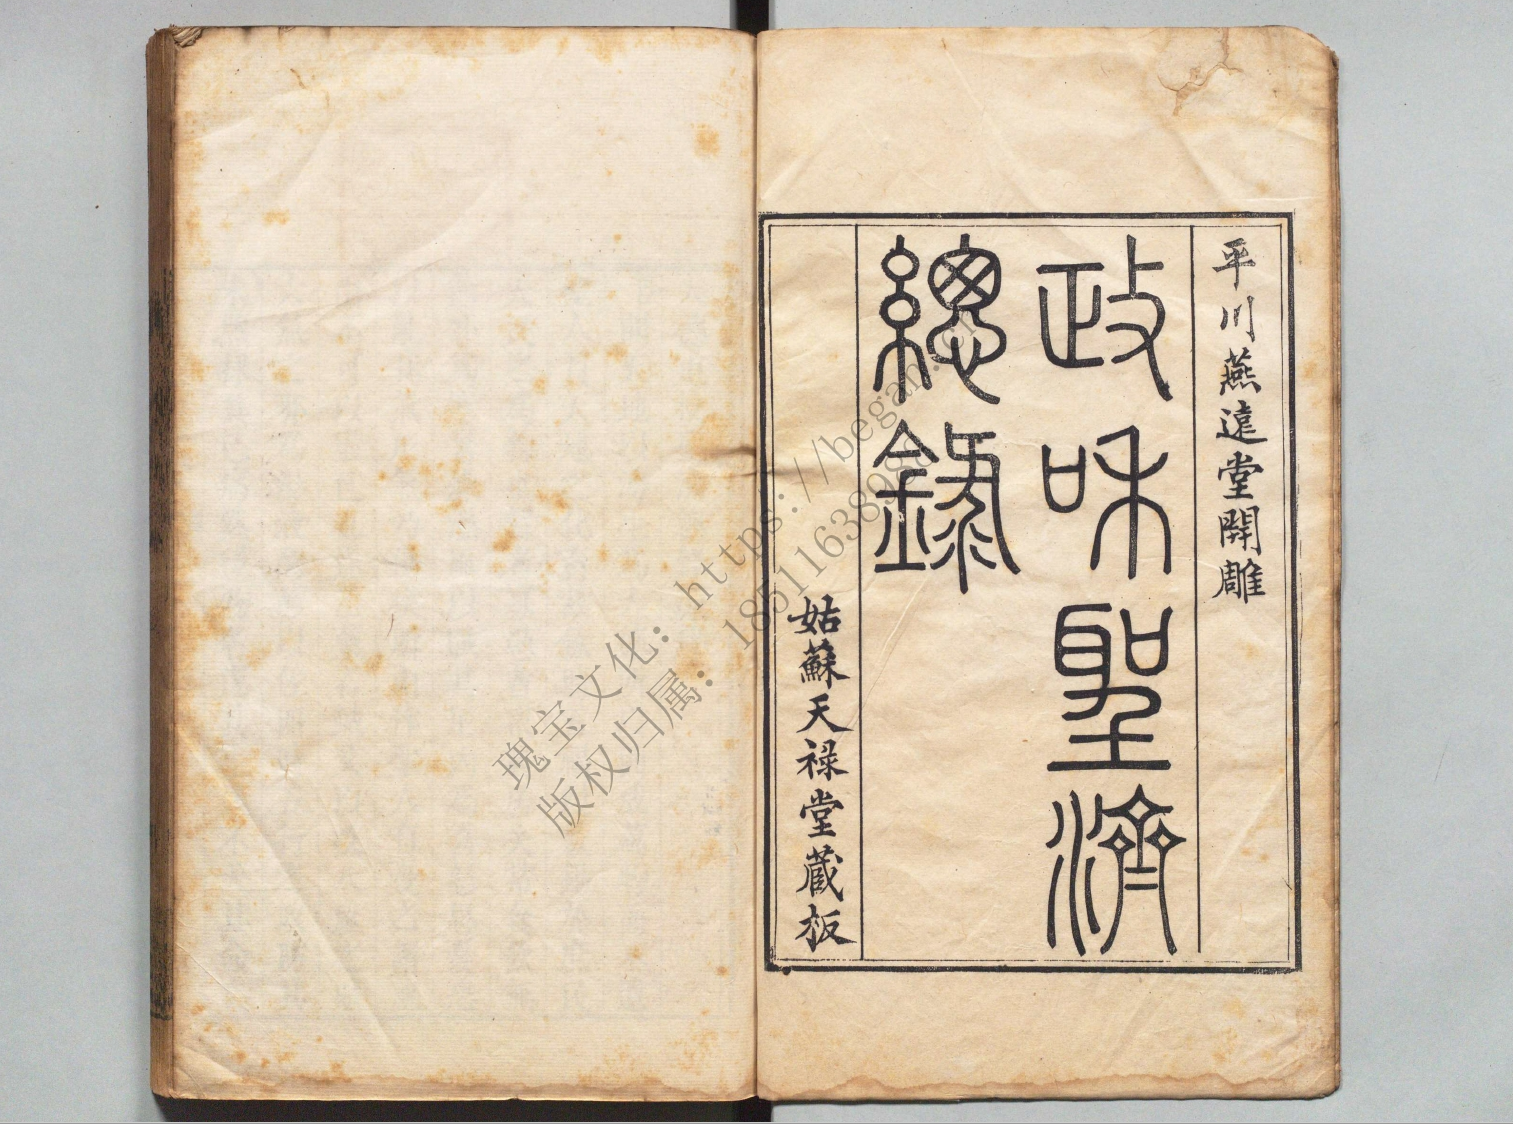 平川燕遠堂開雕
政和聖濟
總錄
姑蘇天祿堂藏板
瑰宝文化：https://began.cn
版权归属：18511638983